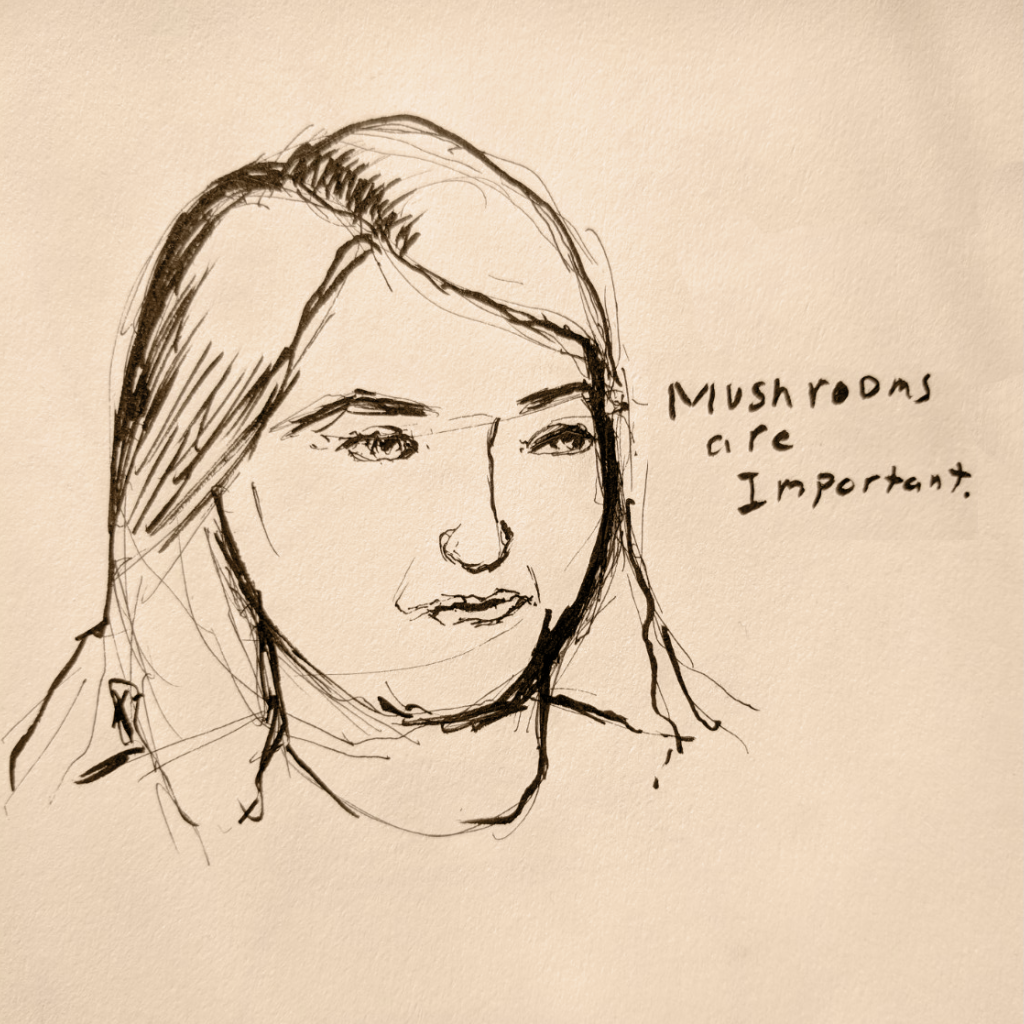 Mushrooms
are
Important.